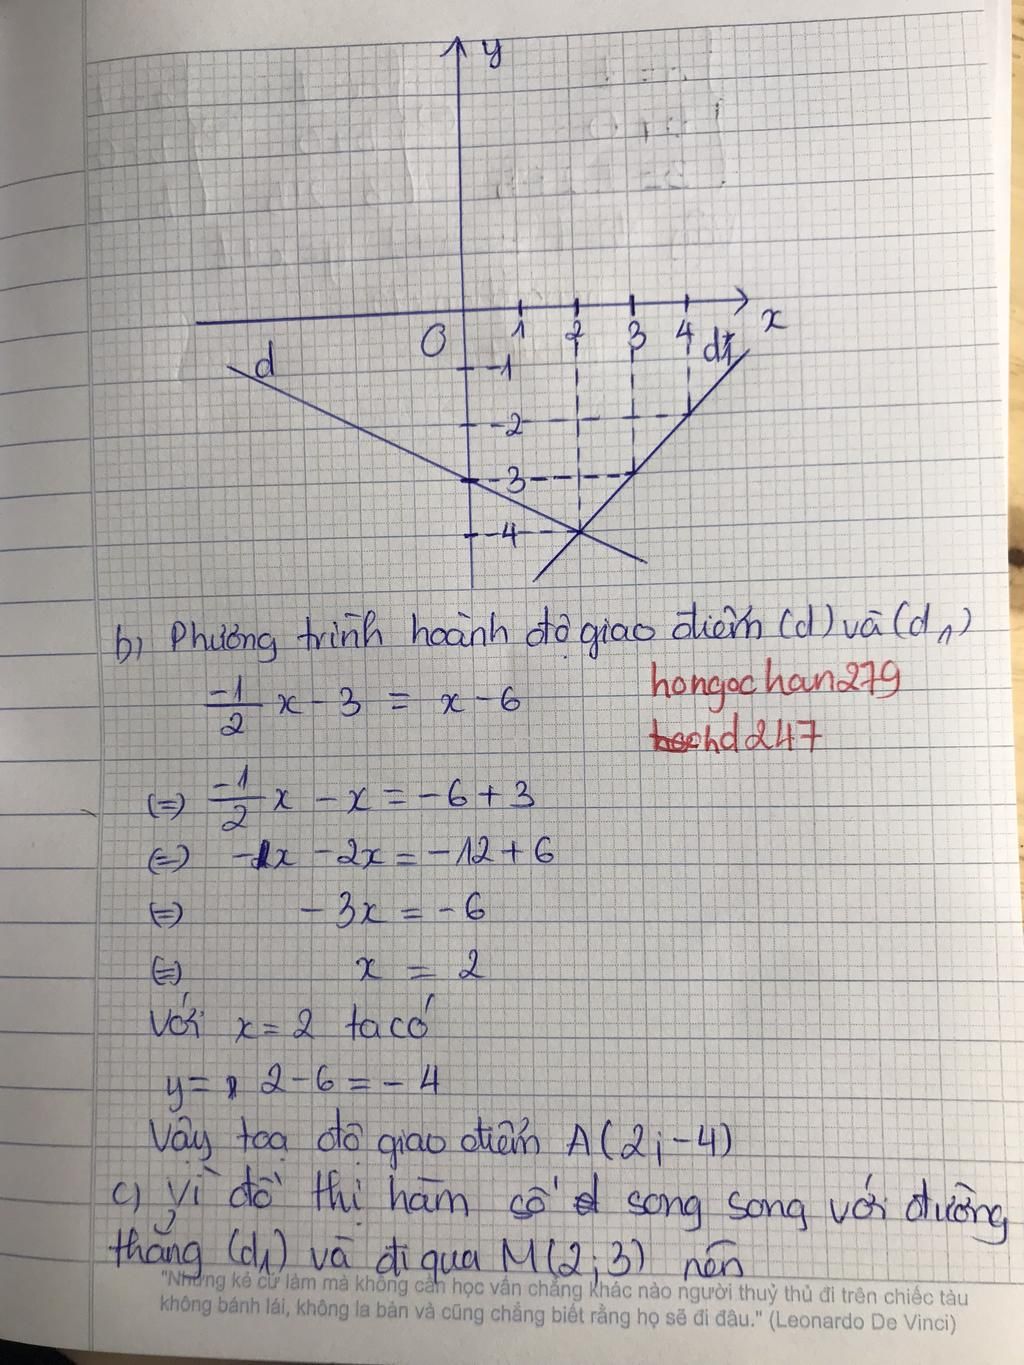 y
O 1 2 3 4 x
d d₁
-1
-2
-3
-4
b) Phương trình hoành độ giao điểm (d) và (d₁)
-1/2 x - 3 = x - 6
hongochan279
hd247
(=) -1/2 x - x = -6 + 3
(=) -1x - 2x = -12 + 6
(=) -3x = -6
(=) x = 2
Với x = 2 ta có
y = 2 - 6 = -4
Vậy toạ độ giao điểm A(2; -4)
c) Vì đồ thị hàm số song song với đường
thẳng (d₁) và đi qua M(2; 3) nên
"Những kẻ cứ làm mà không cần học vấn chẳng khác nào người thuỷ thủ đi trên chiếc tàu
không bánh lái, không la bàn và cũng chẳng biết rằng họ sẽ đi đâu." (Leonardo De Vinci)